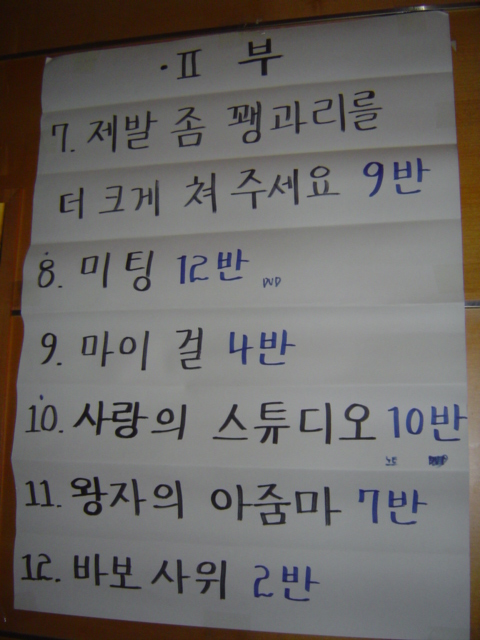 ·II 부
7. 제발 좀 꽹과리를
더 크게 쳐 주세요 9반
8. 미팅 12반
DVD
9. 마이 걸 4반
10. 사랑의 스튜디오 10반
노트
11. 왕자의 아줌마 7반
12. 바보 사위 2반